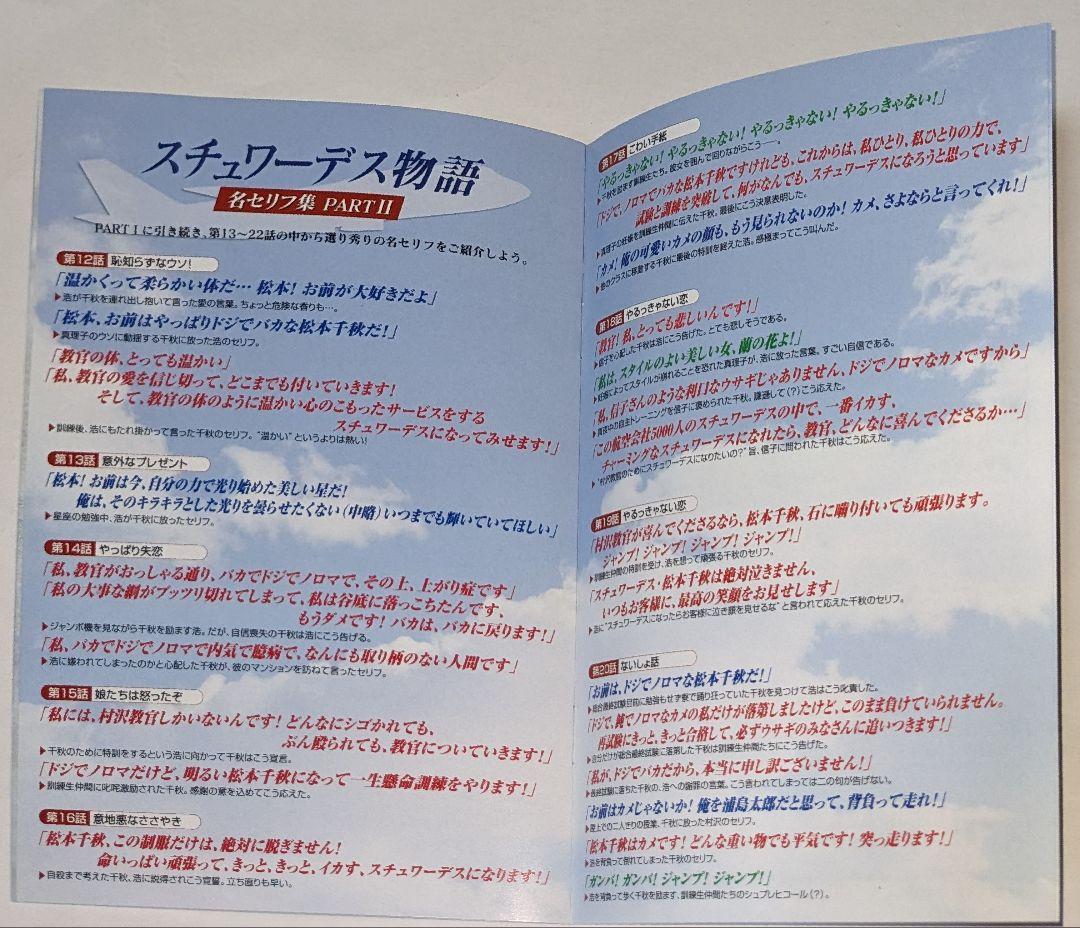 スチュワーデス物語
名セリフ集 PART II
PART I に引き続き、第13~22話の中から選り秀りの名セリフをご紹介しよう。
第12話 恥知らずなウソ!
「温かくって柔らかい体だ… 松本! お前が大好きだよ」
▶浩が千秋を連れ出し抱いて言った愛の言葉。ちょっと危険な香りも…。
「松本、お前はやっぱりドジでバカな松本千秋だ!」
▶真理子のウソに動揺する千秋に放った浩のセリフ。
「教官の体、とっても温かい」
「私、教官の愛を信じ切って、どこまでも付いていきます!
そして、教官の体のように温かい心のこもったサービスをする
スチュワーデスになってみせます!」
▶訓練後、浩にもたれ掛かって言った千秋のセリフ。“温かい”というよりは熱い!
第13話 意外なプレゼント
「松本! お前は今、自分の力で光り始めた美しい星だ!
俺は、そのキラキラとした光りを曇らせたくない(中略)いつまでも輝いていてほしい」
▶星座の勉強中、浩が千秋に放ったセリフ。
第14話 やっぱり失恋
「私、教官がおっしゃる通り、バカでドジでノロマで、その上、上がり症です」
「私の大事な綱がプッツリ切れてしまって、私は谷底に落っこちたんです、
もうダメです! バカは、バカに戻ります!」
▶ジャンボ機を見ながら千秋を励ます浩。だが、自信喪失の千秋は浩にこう告げる。
「私、バカでドジでノロマで内気で臆病で、なんにも取り柄のない人間です」
▶浩に嫌われてしまったのかと心配した千秋が、彼のマンションを訪ねて言ったセリフ。
第15話 娘たちは怒ったぞ
「私には、村沢教官しかいないんです! どんなにシゴかれても、
ぶん殴られても、教官についていきます!」
▶千秋のために特訓をするという浩に向かって千秋はこう宣言。
「ドジでノロマだけど、明るい松本千秋になって一生懸命訓練をやります!」
▶訓練生仲間に叱咤激励された千秋。感謝の意を込めてこう応えた。
第16話 意地悪なささやき
「松本千秋、この制服だけは、絶対に脱ぎません!
命いっぱい頑張って、きっと、きっと、イカす、スチュワーデスになります!」
▶自殺まで考えた千秋、浩に説得されこう宣誓。立ち直りも早い。
第17話 こわい手紙
「やるっきゃない! やるっきゃない! やるっきゃない! やるっきゃない!」
▶千秋を励ます訓練生たち。彼女を囲んで回りながらこう――。
「ドジで、ノロマでバカな松本千秋ですけれども、これからは、私ひとり、私ひとりの力で、
試験と訓練を突破して、何がなんでも、スチュワーデスになろうと思っています」
▶真理子の妊娠を訓練生仲間に伝えた千秋。最後にこう決意表明した。
「カメ! 俺の可愛いカメの顔も、もう見られないのか! カメ、さよならと言ってくれ!」
▶他のクラスに移動する千秋に最後の特訓を終えた浩。感極まってこう叫んだ。
第18話 やるっきゃない恋
「教官! 私、とっても悲しいんです!」
▶信子を心配した千秋は浩にこう告げた。とても悲しそうである。
「私は、スタイルのよい美しい女、蘭の花よ!」
▶妊娠によってスタイルが崩れることを恐れた真理子が、浩に放った言葉。すごい自信である。
「私、信子さんのような利口なウサギじゃありません、ドジでノロマなカメですから」
▶真夜中の自主トレーニングを信子に褒められた千秋。謙遜して(?)こう応えた。
「この航空会社5000人のスチュワーデスの中で、一番イカす、
チャーミングなスチュワーデスになれたら、教官、どんなに喜んでくださるか…」
▶“村沢教官のためにスチュワーデスになりたいの?”旨、信子に問われた千秋はこう応えた。
第19話 やるっきゃない恋
「村沢教官が喜んでくださるなら、松本千秋、石に囓り付いても頑張ります。
ジャンプ! ジャンプ! ジャンプ! ジャンプ!」
▶訓練生仲間の特訓を受け、浩を想って頑張る千秋のセリフ。
「スチュワーデス・松本千秋は絶対泣きません、
いつもお客様に、最高の笑顔をお見せします」
▶浩に“スチュワーデスになったらお客様に泣き顔を見せるな”と言われて応えた千秋のセリフ。
第20話 ないしょ話
「お前は、ドジでノロマな松本千秋だ!」
▶総合最終試験目前に勉強もせず寮で踊り狂っていた千秋を見つけて浩はこう叱責した。
「ドジで、鈍でノロマなカメの私だけが落第しましたけど、このまま負けていられません。
再試験にきっと、きっと合格して、必ずウサギのみなさんに追いつきます!」
▶自分だけが総合最終試験に落第した千秋は訓練生仲間たちにこう告げた。
「私が、ドジでバカだから、本当に申し訳ございません!」
▶最終試験に落ちた千秋の、浩への謝罪の言葉。こう言われてしまっては二の句が告げない。
「お前はカメじゃないか! 俺を浦島太郎だと思って、背負って走れ!」
▶屋上での二人きりの授業、千秋に放った村沢のセリフ。
「松本千秋はカメです! どんな重い物でも平気です! 突っ走ります!」
▶浩を背負って倒れてしまった千秋のセリフ。
「ガンバ! ガンバ! ジャンプ! ジャンプ!」
▶浩を背負って歩く千秋を励ます、訓練生仲間たちのシュプレヒコール(?)。